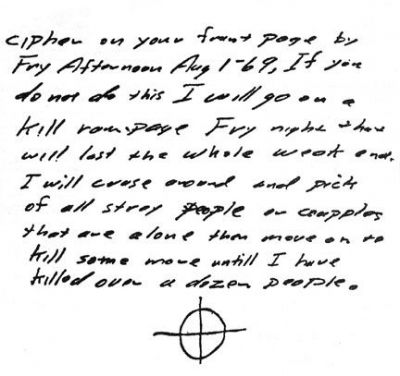 cipher on your frunt page by
Fry Afternoon Aug 1-69, If you
do not do this I will go on a
kill rampage Fry night that
will last the whole week end.
I will cruse around and pick
of all stray people or coupples
that are alone then move on to
kill some more untill I have
killed over a dozen people.